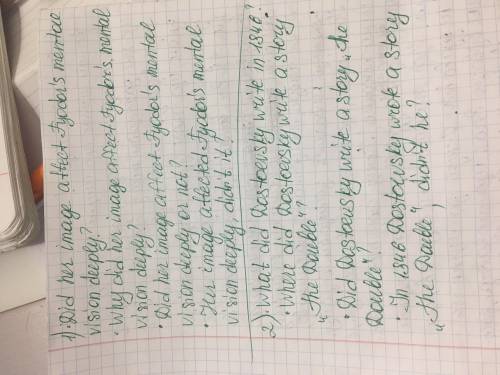 1) • Did her image affect Fyodor's mental
vision deeply?
• Why did her image affect Fyodor's mental
vision deeply?
• Did her image affect Fyodor's mental
vision deeply or not?
• Her image affected Fyodor's mental
vision deeply didn't it?
2) • What did Dostowsky write in 1846?
• Where did Dostowsky write a story
„the Double"?
• Did Dostowsky write a story „the
Double"?
• In 1846 Dostowsky wrote a story
„the Double", didn't he?